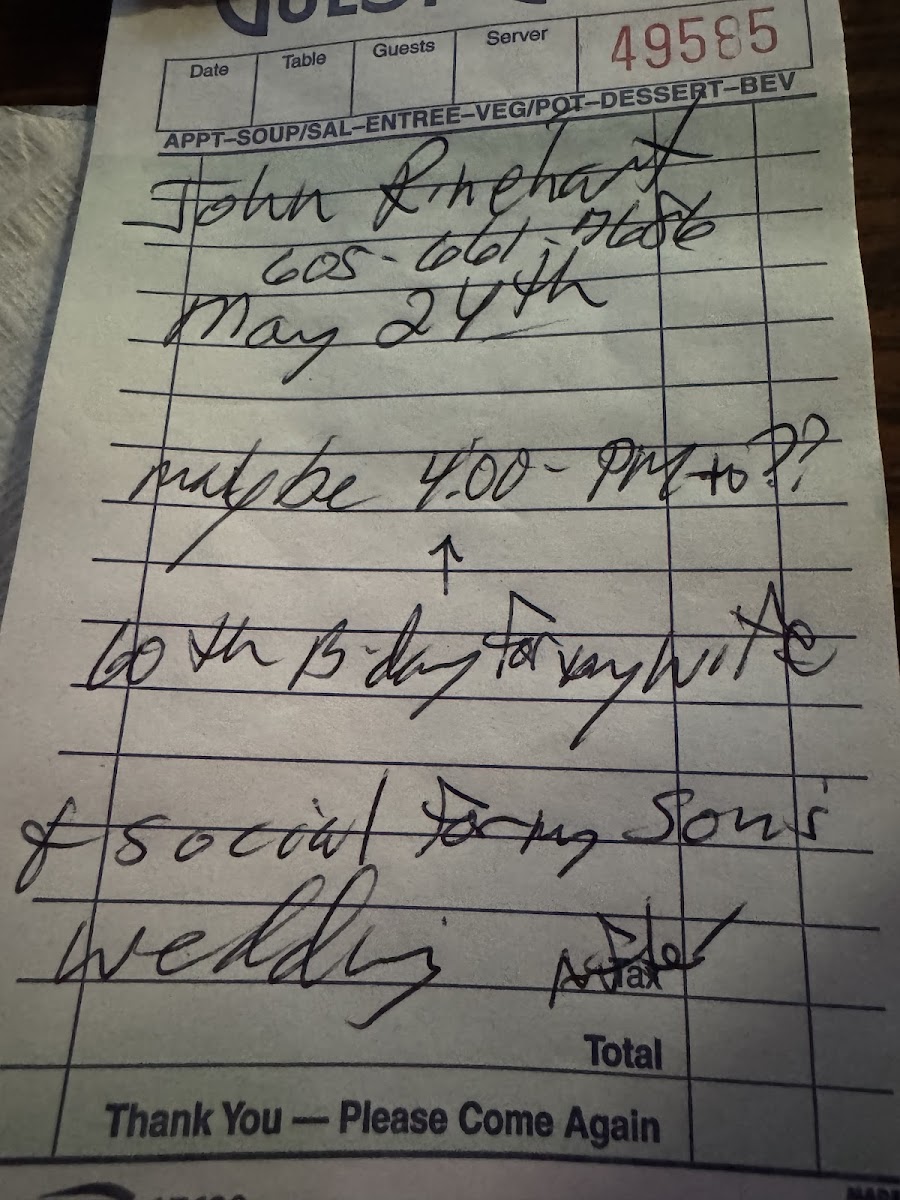 Date Table Guests Server 49585
APPT-SOUP/SAL-ENTREE-VEG/POT-DESSERT-BEV
John Rinehart
605-661-7686
May 24th
maybe 4:00- PM to ??
↑
60th B-day for my wife
& social for my son's
wedding After
Tax
Total
Thank You — Please Come Again